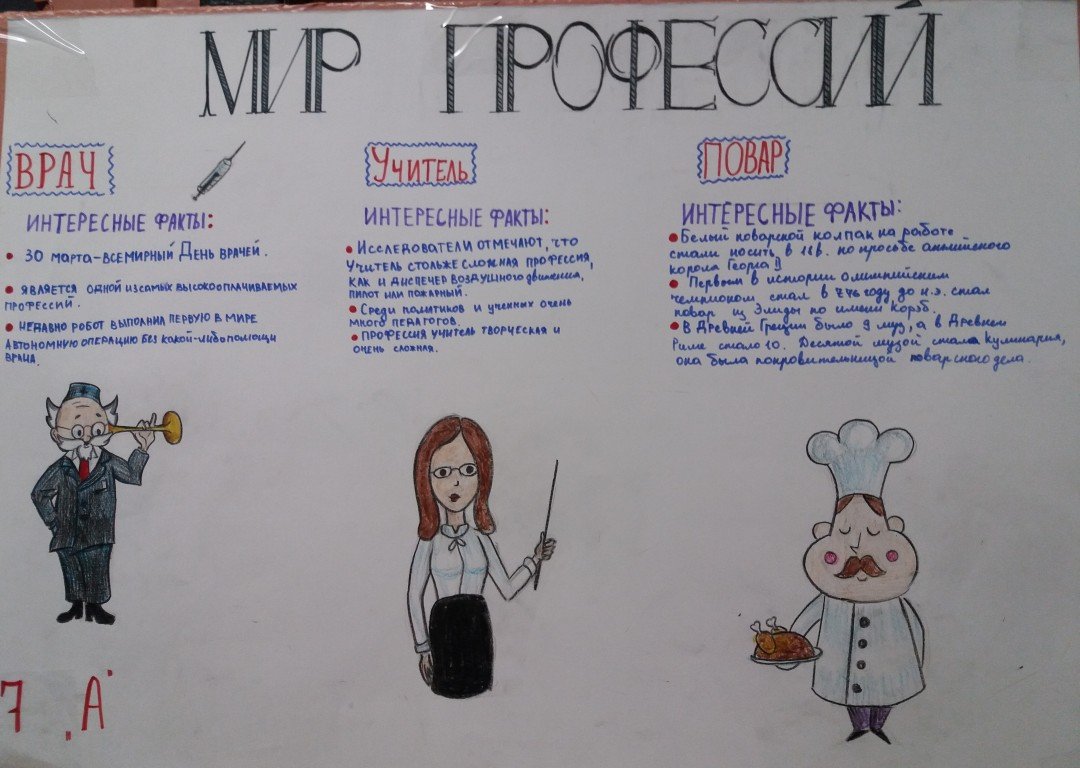 МИР ПРОФЕССИЙ
ВРАЧ
ИНТЕРЕСНЫЕ ФАКТЫ:
• 30 МАРТА-ВСЕМИРНЫЙ ДЕНЬ ВРАЧЕЙ.
• ЯВЛЯЕТСЯ ОДНОЙ ИЗ САМЫХ ВЫСОКООПЛАЧИВАЕМЫХ
ПРОФЕССИЙ.
• НЕДАВНО РОБОТ ВЫПОЛНИЛ ПЕРВУЮ В МИРЕ
АВТОНОМНУЮ ОПЕРАЦИЮ БЕЗ КАКОЙ-ЛИБО ПОМОЩИ
ВРАЧА.
УЧИТЕЛЬ
ИНТЕРЕСНЫЕ ФАКТЫ:
• ИССЛЕДОВАТЕЛИ ОТМЕЧАЮТ, ЧТО
УЧИТЕЛЬ СТОЛЬ ЖЕ СЛОЖНАЯ ПРОФЕССИЯ,
КАК И ДИСПЕЧЕР ВОЗДУШНОГО ДВИЖЕНИЯ,
ПИЛОТ ИЛИ ПОЖАРНЫЙ.
• СРЕДИ ПОЛИТИКОВ И УЧЕННИХ ОЧЕНЬ
МНОГО ПЕДАГОГОВ.
• ПРОФЕССИЯ УЧИТЕЛЬ ТВОРЧЕСКАЯ И
ОЧЕНЬ СЛОЖНАЯ.
ПОВАР
ИНТЕРЕСНЫЕ ФАКТЫ:
• Белый поварской колпак на работе
стали носить в 18в. по просьбе английского
короля Георга II
• Первым в истории олимпийским
чемпионом стал в 776 году до н.э. стал
повар из Элиды по имени Корэб.
• В Древней Греции было 9 муз, а в Древнем
Риме стало 10. Десятой музой стала Кулинария,
она была покровительницой поварского дела.
7 „А"